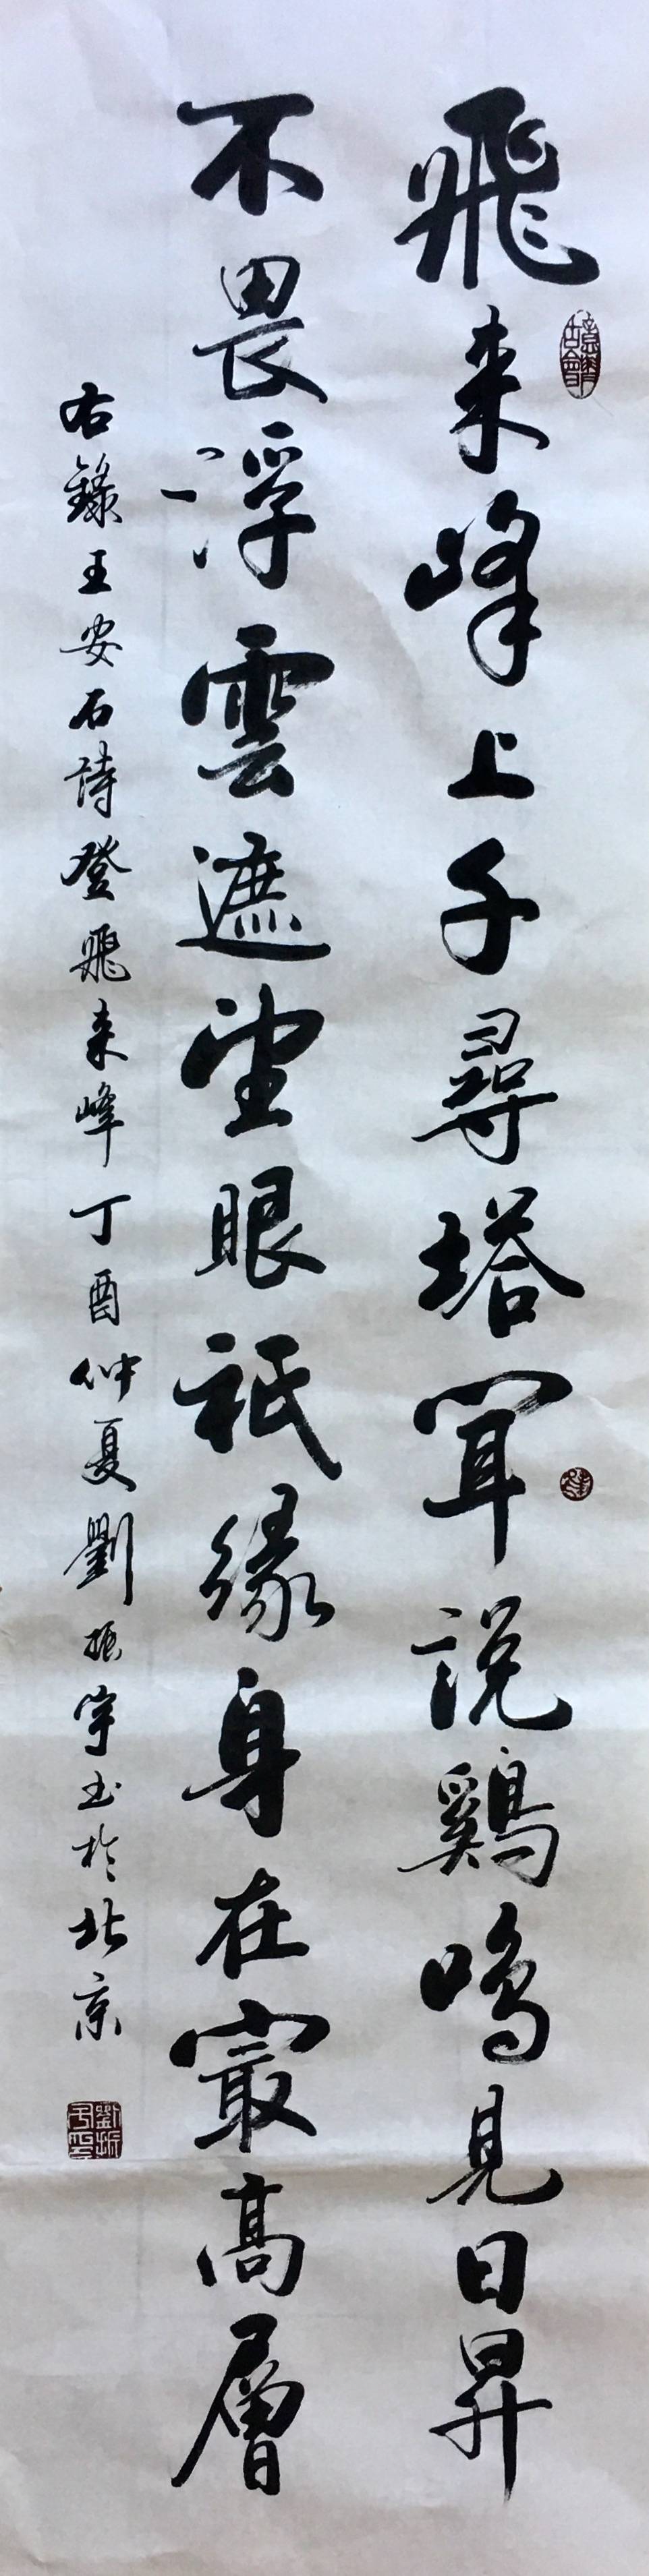 飛来峰上千尋塔聞説鷄鳴見日昇
不畏浮雲遮望眼祇緣身在最高層
右錄王安石詩登飛来峰丁酉仲夏劉振宇书於北京